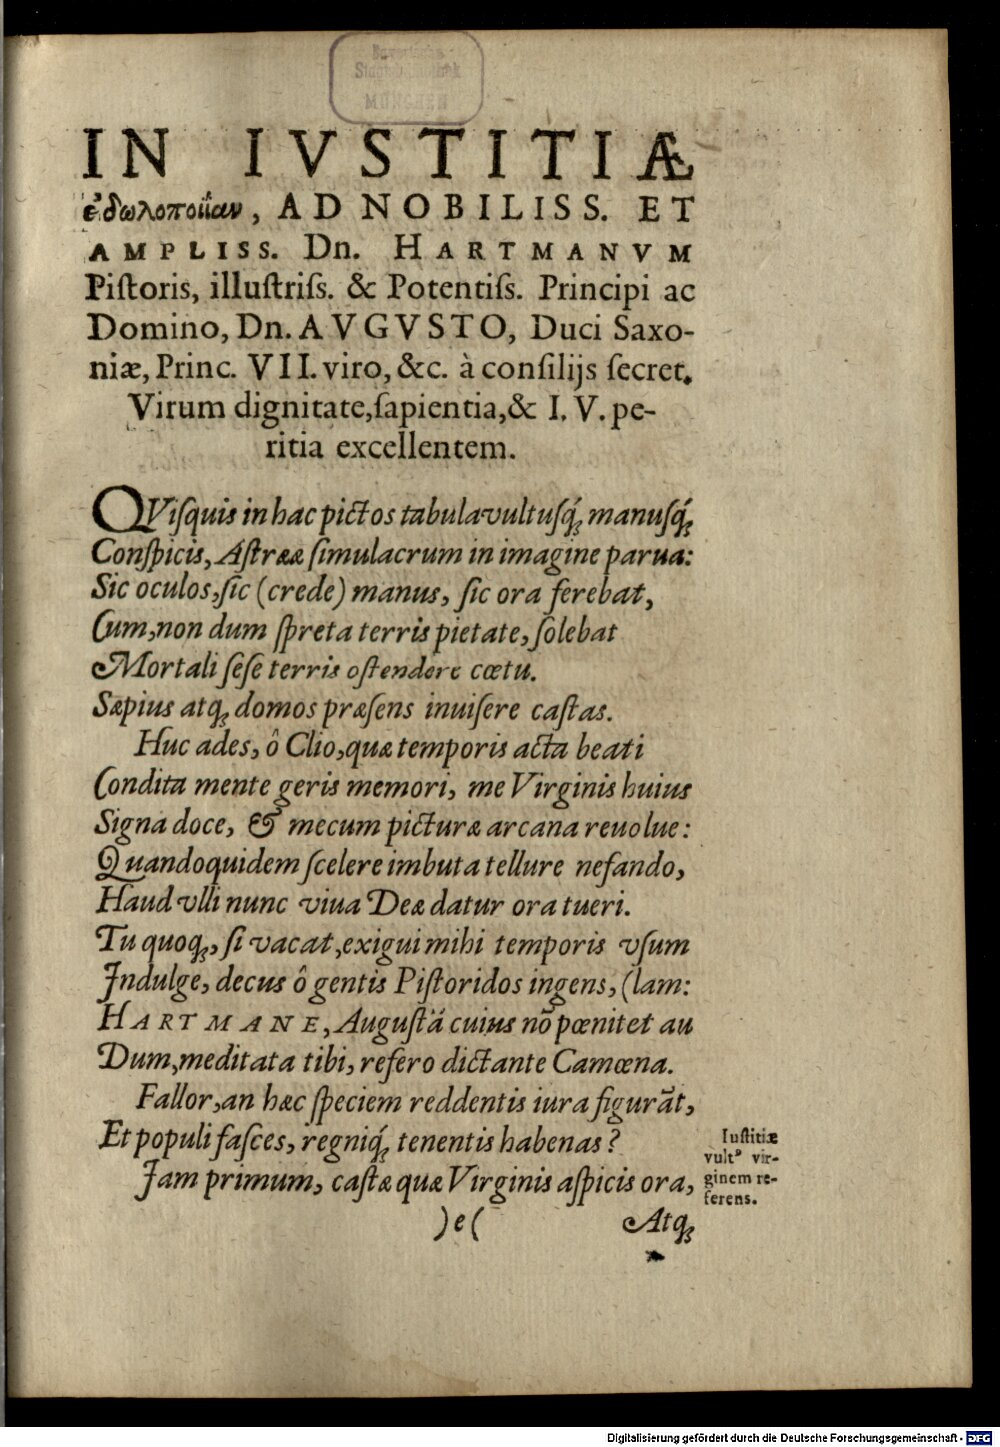 Bayerische
Staatsbibliothek
MÜNCHEN
IN IVSTITIÆ
ἐιδωλοποιΐαν, AD NOBILISS. ET
AMPLISS. Dn. HARTMANVM
Piſtoris, illuſtriſs. & Potentiſs. Principi ac
Domino, Dn. AVGVSTO, Duci Saxo-
niæ, Princ. VII. viro, &c. à conſilijs ſecret.
Virum dignitate, ſapientia, & I. V. pe-
ritia excellentem.
QViſquis in hac pictos tabula vultuſq́; manuſq́;
Conſpicis, Aſtrææ ſimulacrum in imagine parua:
Sic oculos, ſic (crede) manus, ſic ora ferebat,
Cum, non dum ſpreta terris pietate, ſolebat
Mortali ſeſe terris oſtendere cœtu.
Sæpius atq; domos præſens inuiſere caſtas.
Huc ades, ô Clio, quæ temporis acta beati
Condita mente geris memori, me Virginis huius
Signa doce, & mecum picturæ arcana reuolue:
Quandoquidem ſcelere imbuta tellure nefando,
Haud vlli nunc viua Deæ datur ora tueri.
Tu quoq;, ſi vacat, exigui mihi temporis vſum
Indulge, decus ô gentis Piſtoridos ingens, (lam:
HARTMANE, Auguſtā cuius nō pœnitet au
Dum, meditata tibi, refero dictante Camœna.
Fallor, an hæc ſpeciem reddentis iura figurāt,
Et populi faſces, regniq́; tenentis habenas?
Jam primum, caſtæ quæ Virginis aſpicis ora,
Iuſtitiæ
vultꝰ vir-
ginem re-
ferens.
)e( Atq;
Digitalisierung gefördert durch die Deutsche Forschungsgemeinschaft - DFG